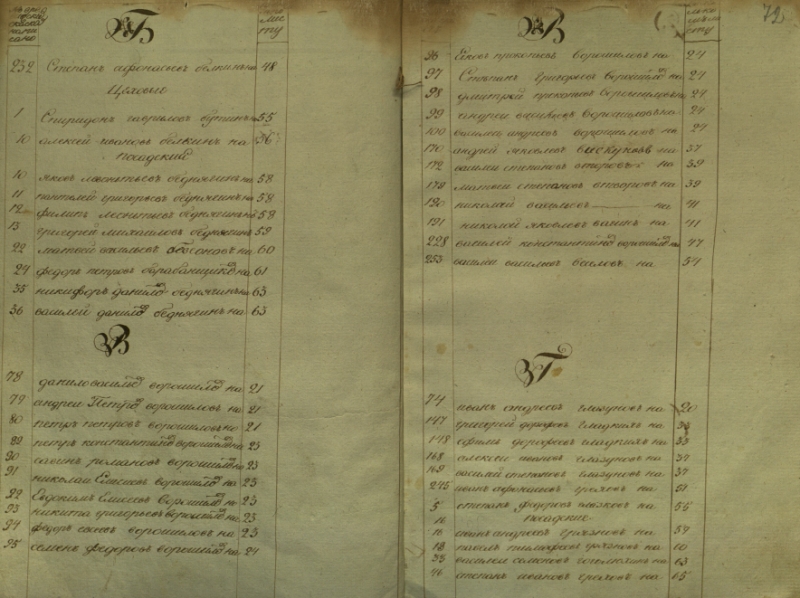 Б
232 Степанъ афонасьевъ белкинъ на 48
Цеховые
1 Спиридонъ гавриловъ бутинъ на 55
10 алексей ивановъ белкинъ на 56
посадский
10 яковъ леонтьевъ беднягинъ на 58
11 пантелей григорьевъ беднягинъ на 58
12 филипъ леонтьевъ беднягинъ на 58
13 григорей михаиловъ беднягинъ 59
22 матвей васильевъ на 60
24 федоръ петровъ барабанщиковъ на 61
35 никифоръ данилов беднягинъ на 63
36 василей данилов беднягинъ на 63
В
78 данило васильев ворошилов на 21
79 андреи Петров ворошиловъ на 21
80 петръ петровъ ворошиловъ на 21
89 петръ константинов ворошилов на 23
90 савинъ романовъ ворошилов на 23
91 николаи Елисеевъ ворошилов на 23
92 Евдокимъ Елисеевъ ворошилов на 23
93 никита григорьевъ ворошилов на 23
94 федоръ саввевъ ворошиловъ на 23
95 семенъ федоровъ ворошилов на 24
72
В
96 Яковъ прокопьевъ ворошиловъ на 24
97 Степанъ григорьевъ ворошилов на 24
98 дмитрей прокопьевъ ворошиловъ на 24
99 андреи васильевъ ворошиловъ на 24
100 василеи андреевъ ворошиловъ на 24
170 андрей яковлевъ на 37
172 василеи степановъ второвъ на 39
179 матвеи степановъ второвъ на 39
190 николай васильевъ на 41
191 николай яковлевъ вагинъ на 41
228 василей константинов ворошилов на 47
253 василеи васильевъ на 54
Г
74 иванъ андреевъ глазуновъ на 20
147 григорей дорофеевъ гладкихъ на 33
148 ефимъ дорофеевъ гладкихъ на 33
168 алексеи ивановъ глазуновъ на 37
169 василей степановъ глазуновъ на 37
245 иванъ афонасьевъ на 51
5 степанъ федоровъ на 55
посадские
16 иванъ андреевъ на 59
18 павелъ на 60
33 василеи семеновъ на 63
46 степанъ ивановъ на 65